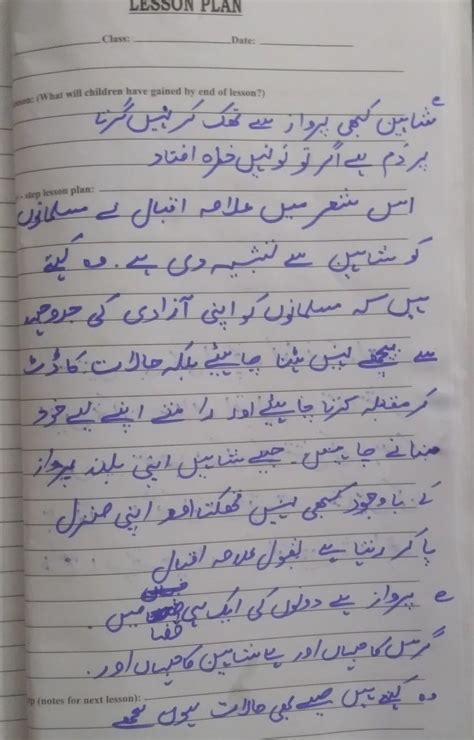 LESSON PLAN
Class: Date:
(What will children have gained by end of lesson?)
شاہین کبھی پرواز سے تھک کر نہیں گرتا
پر دم ہے اگر تو تو نہیں خطرہ افتاد
step lesson plan:
اس شعر میں علامہ اقبال نے مسلمانوں
کو شاہین سے تشبیہ دی ہے. وہ کہتے
ہیں کہ مسلمانوں کو اپنی آزادی کی جدوجہد
سے پیچھے نہیں ہٹنا چاہیئے بلکہ حالات کا ڈٹ
کر مقابلہ کرنا چاہیئے اور راستے اپنے لیے خود
بنانے چاہیں. جیسے شاہین اپنی بلند پرواز
کے باوجود کبھی نہیں تھکتا اور اپنی منزل
پا کر رہتا ہے بقول علامہ اقبال
پرواز ہے دونوں کی ایک ہی فضا میں
گرگس کا جہاں اور ہے شاہین کا جہاں اور.
(notes for next lesson):
وہ کہتے ہیں جیسے بھی حالات ہوں